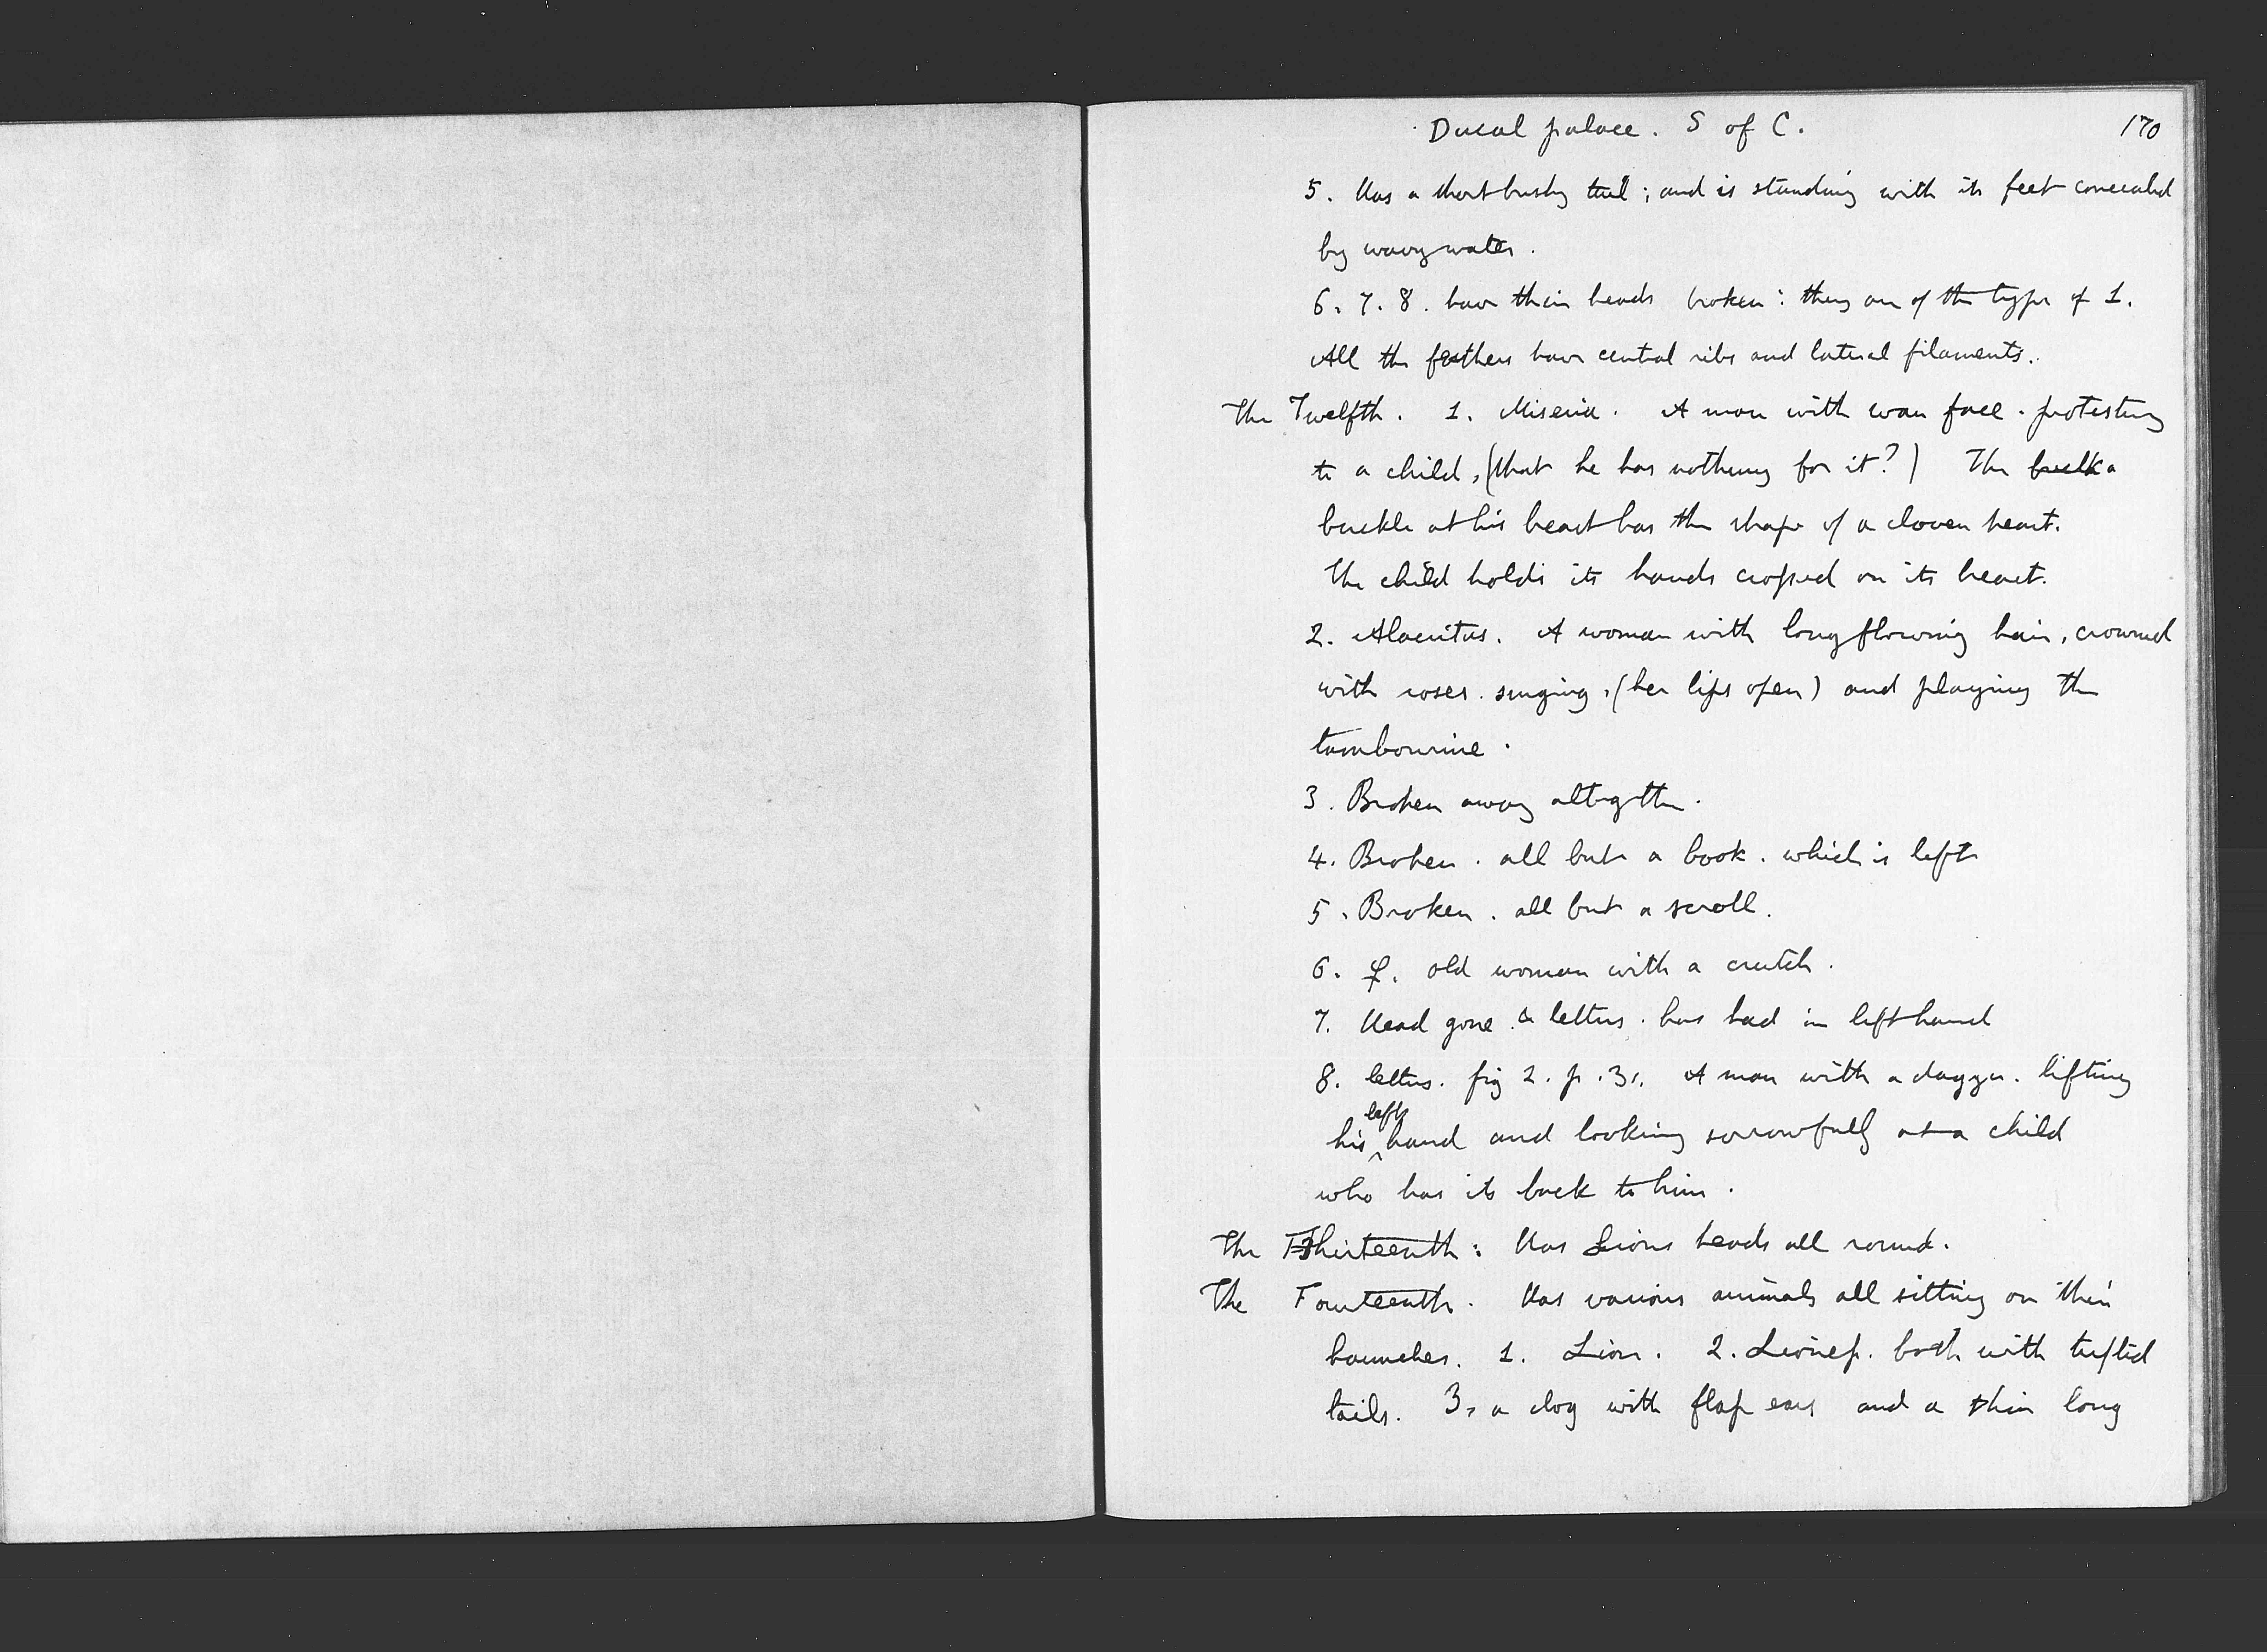 Ducal palace. S of C. 170
5. Has a short bushy tail; and is standing with its feet concealed
by wavy water.
6. 7. 8. have their heads broken: they are of the type of 1.
All the feathers have central ribs and lateral filaments.
The Twelfth. 1. Miseria. A man with wan face. protesting
to a child, (that he has nothing for it?) The a
buckle at his heart has the shape of a cloven heart.
The child holds its hands crossed on its heart.
2. Alacritas. A woman with long flowing hair, crowned
with roses. singing, (her lips open) and playing the
tambourine.
3. Broken away altogether.
4. Broken. all but a book. which is left
5. Broken. all but a scroll.
6. ♀. old woman with a crutch.
7. Head gone & letters. has had in left hand
8. letters. fig 2. p. 31. A man with a dagger. lifting
his left hand and looking sorrowfully at a child
who has its back to him.
The Thirteenth: Has Lions heads all round.
The Fourteenth. Has various animals all sitting on their
haunches. 1. Lion. 2. Lioness. both with tufted
tails. 3, a dog with flap ears and a thin long